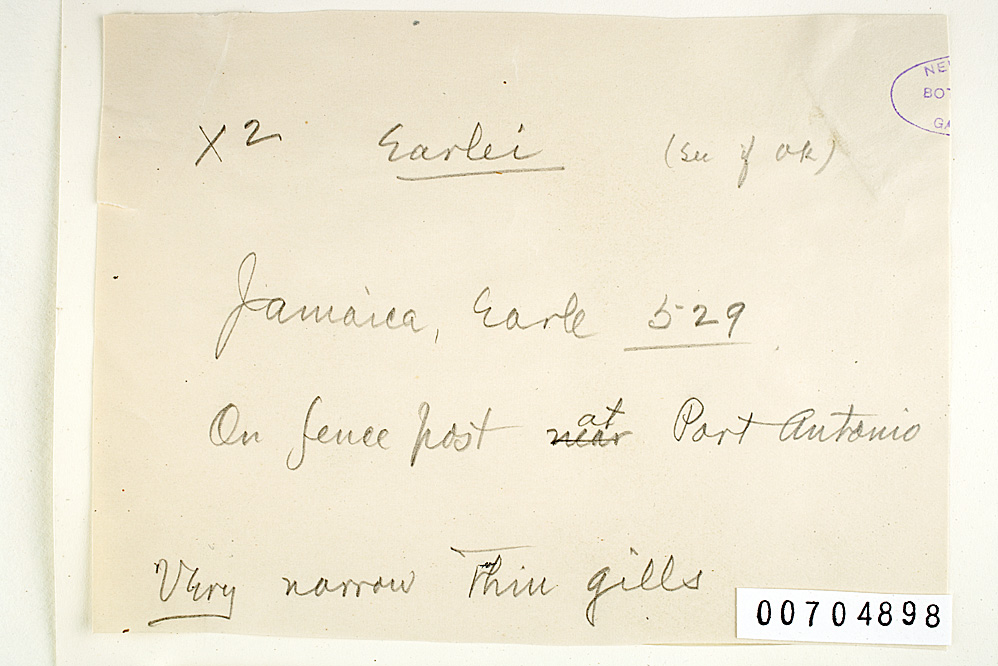 NE
BOT
GA
X2 Earlei (See if OK)
Jamaica, Earle 529
On fence post near at Port Antonio
Very narrow thin gills
00704898